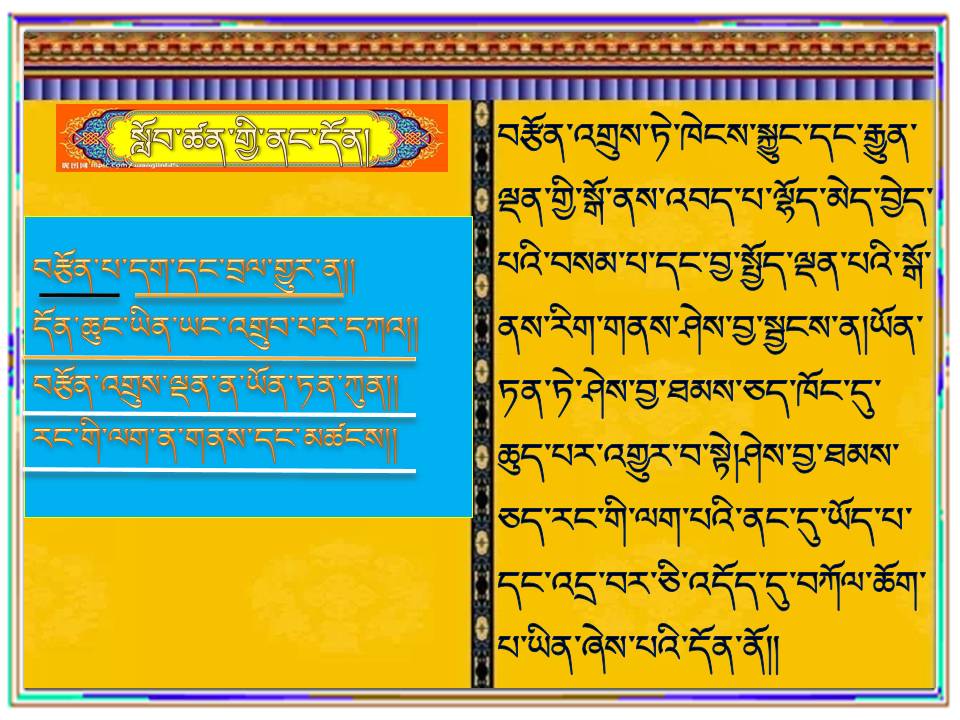 སློབ་ཚན་གྱི་ནང་དོན།
བརྩོན་པ་དག་དང་བྲལ་གྱུར་ན།།
དོན་ཆུང་ཡིན་ཡང་འགྲུབ་པར་དཀའ།།
བརྩོན་འགྲུས་ལྡན་ན་ཡོན་ཏན་ཀུན།།
རང་གི་ལག་ན་གནས་དང་མཚུངས།།
བརྩོན་འགྲུས་ཏེ་ཁེངས་སྐྱུང་དང་རྒྱུན་
ལྡན་གྱི་སྒོ་ནས་འབད་པ་ལྷོད་མེད་བྱེད་
པའི་བསམ་པ་དང་བྱ་སྤྱོད་ལྡན་པའི་སྒོ་
ནས་རིག་གནས་ཤེས་བྱ་སྦྱངས་ན།ཡོན་
ཏན་ཏེ་ཤེས་བྱ་ཐམས་ཅད་ཁོང་དུ་
ཆུད་པར་འགྱུར་བ་སྟེ།ཤེས་བྱ་ཐམས་
ཅད་རང་གི་ལག་པའི་ནང་དུ་ཡོད་པ་
དང་འདྲ་བར་ཅི་འདོད་དུ་བཀོལ་ཆོག་
པ་ཡིན་ཞེས་པའི་དོན་ནོ།།